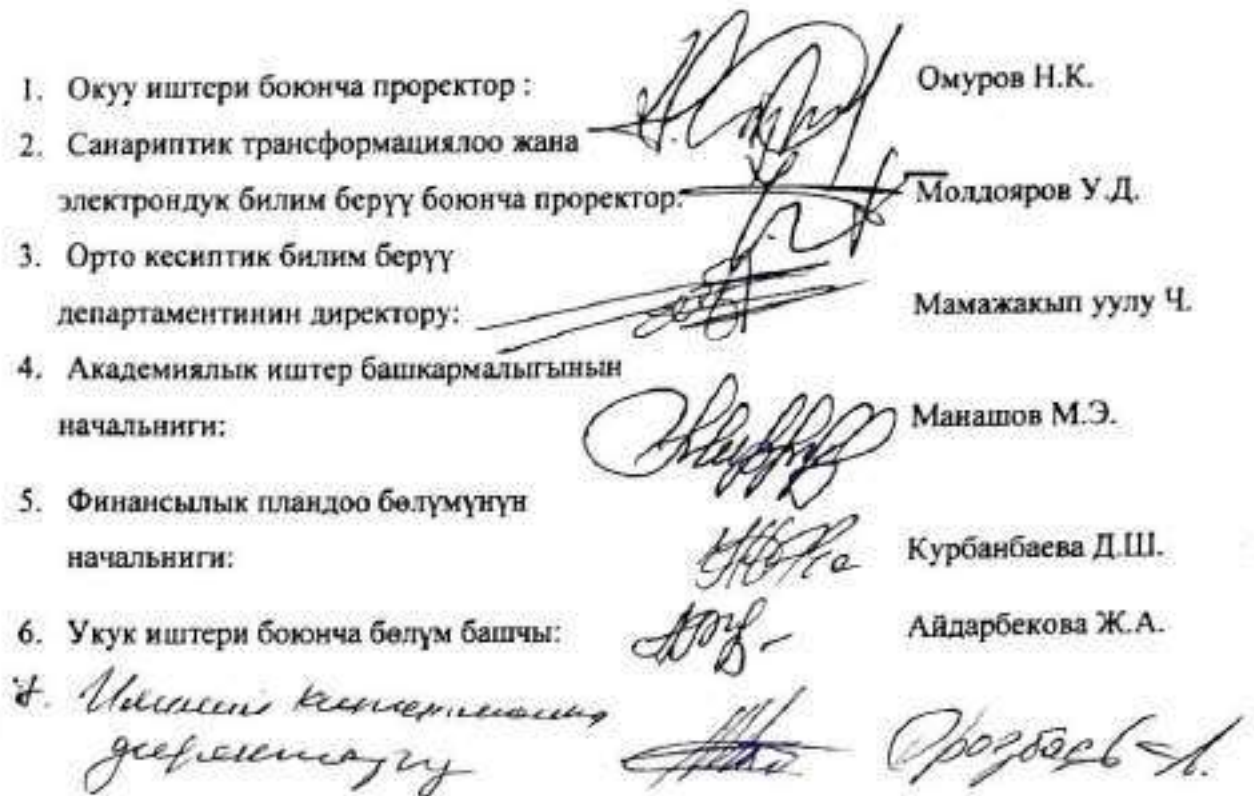 1. Окуу иштери боюнча проректор : Омуров Н.К.
2. Санариптик трансформациялоо жана
электрондук билим берүү боюнча проректор: Молдояров У.Д.
3. Орто кесиптик билим берүү
департаментинин директору: Мамажакып уулу Ч.
4. Академиялык иштер башкармалыгынын
начальниги: Манашов М.Э.
5. Финансылык пландоо бөлүмүнүн
начальниги: Курбанбаева Д.Ш.
6. Укук иштери боюнча бөлүм башчы: Айдарбекова Ж.А.
7. Илимий китепкана
директору Орозбаев А.